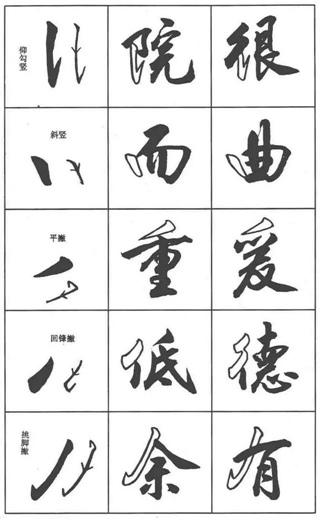 仰勾竖 院 很
斜竖 而 曲
平撇 重
回锋撇 低 德
挑脚撇 余 有